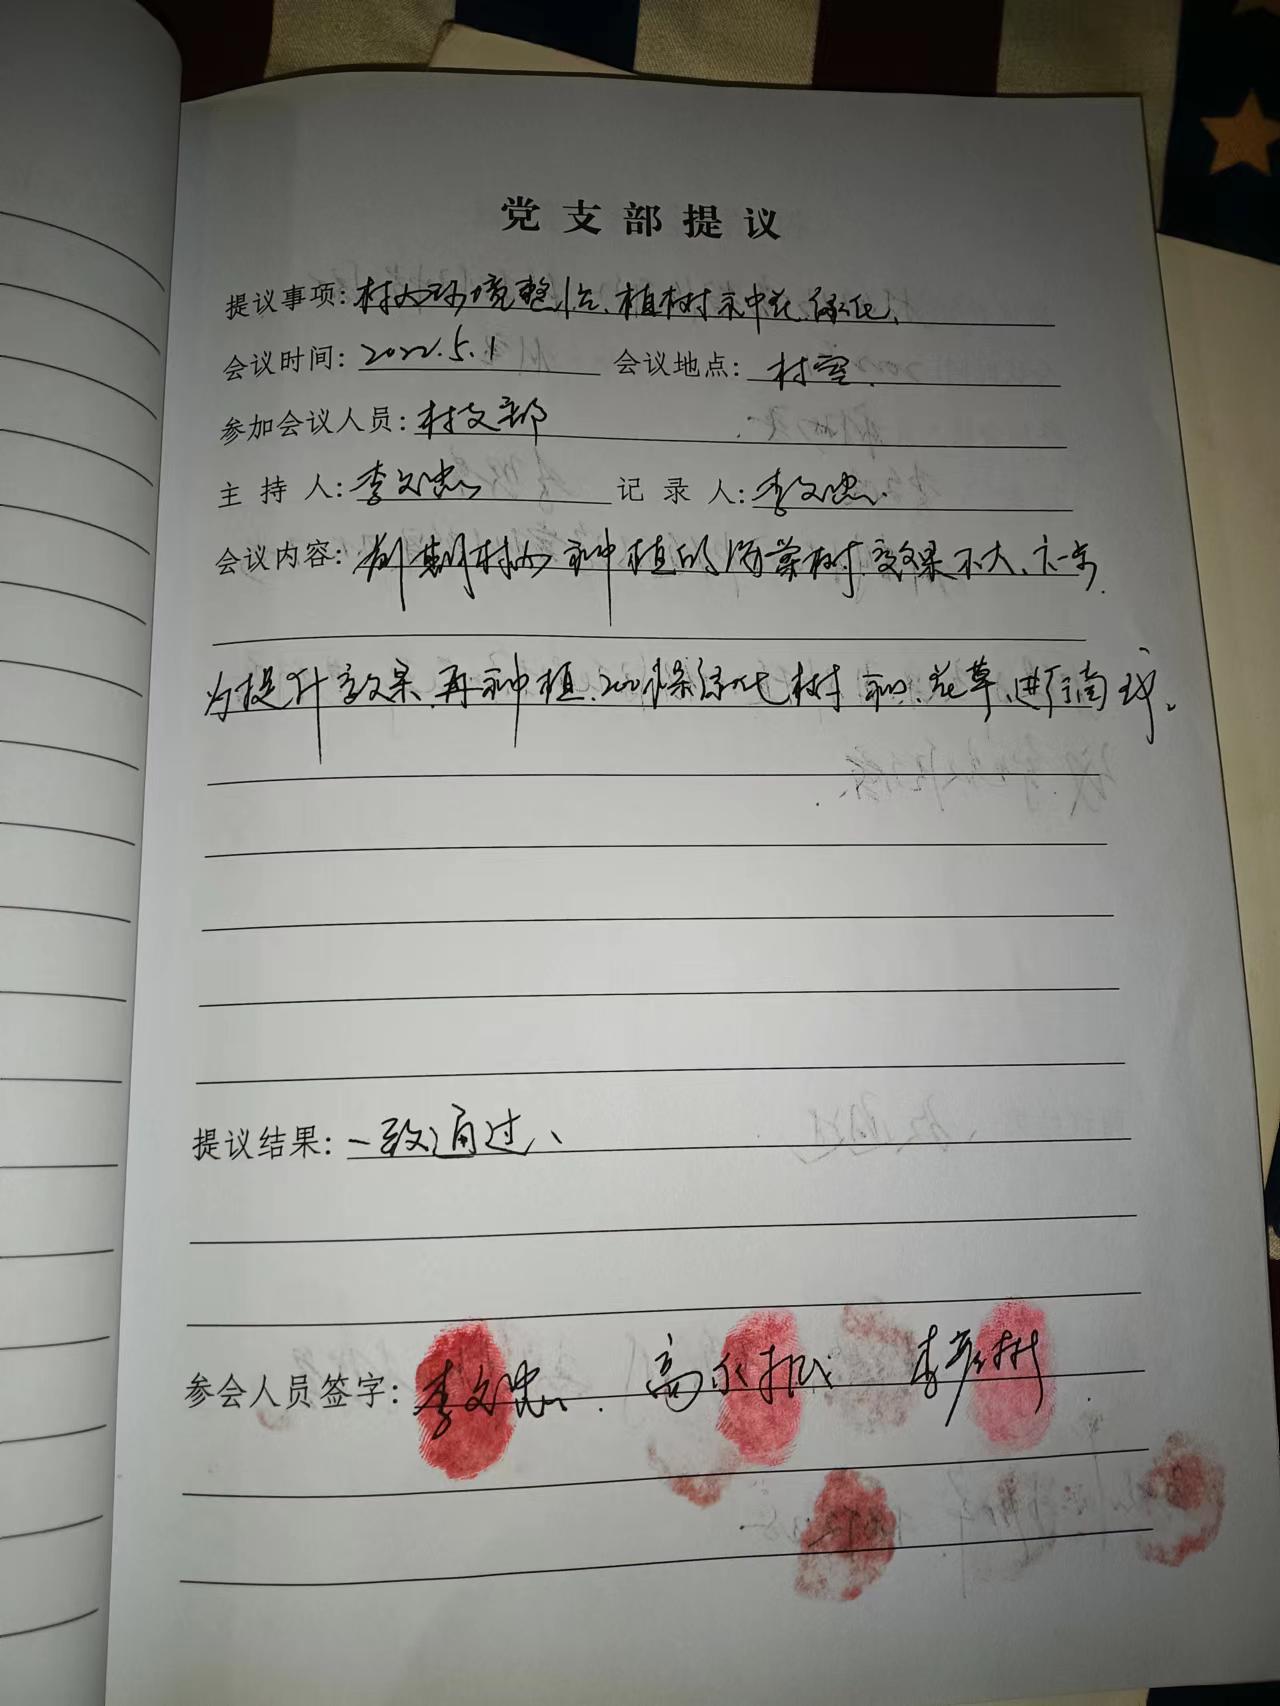 党支部提议
提议事项：村内环境整治、植树种花、绿化、
会议时间：2022.5.1 会议地点：村室.
参加会议人员：村支部
主持人：李文忠 记录人：李文忠.
会议内容：前期村内种植的 树效果不大、下一步
为提升效果、再种植200棵绿化树和花草、进行 。
提议结果：一致通过、
参会人员签字：李文忠. 高永 李彦彬